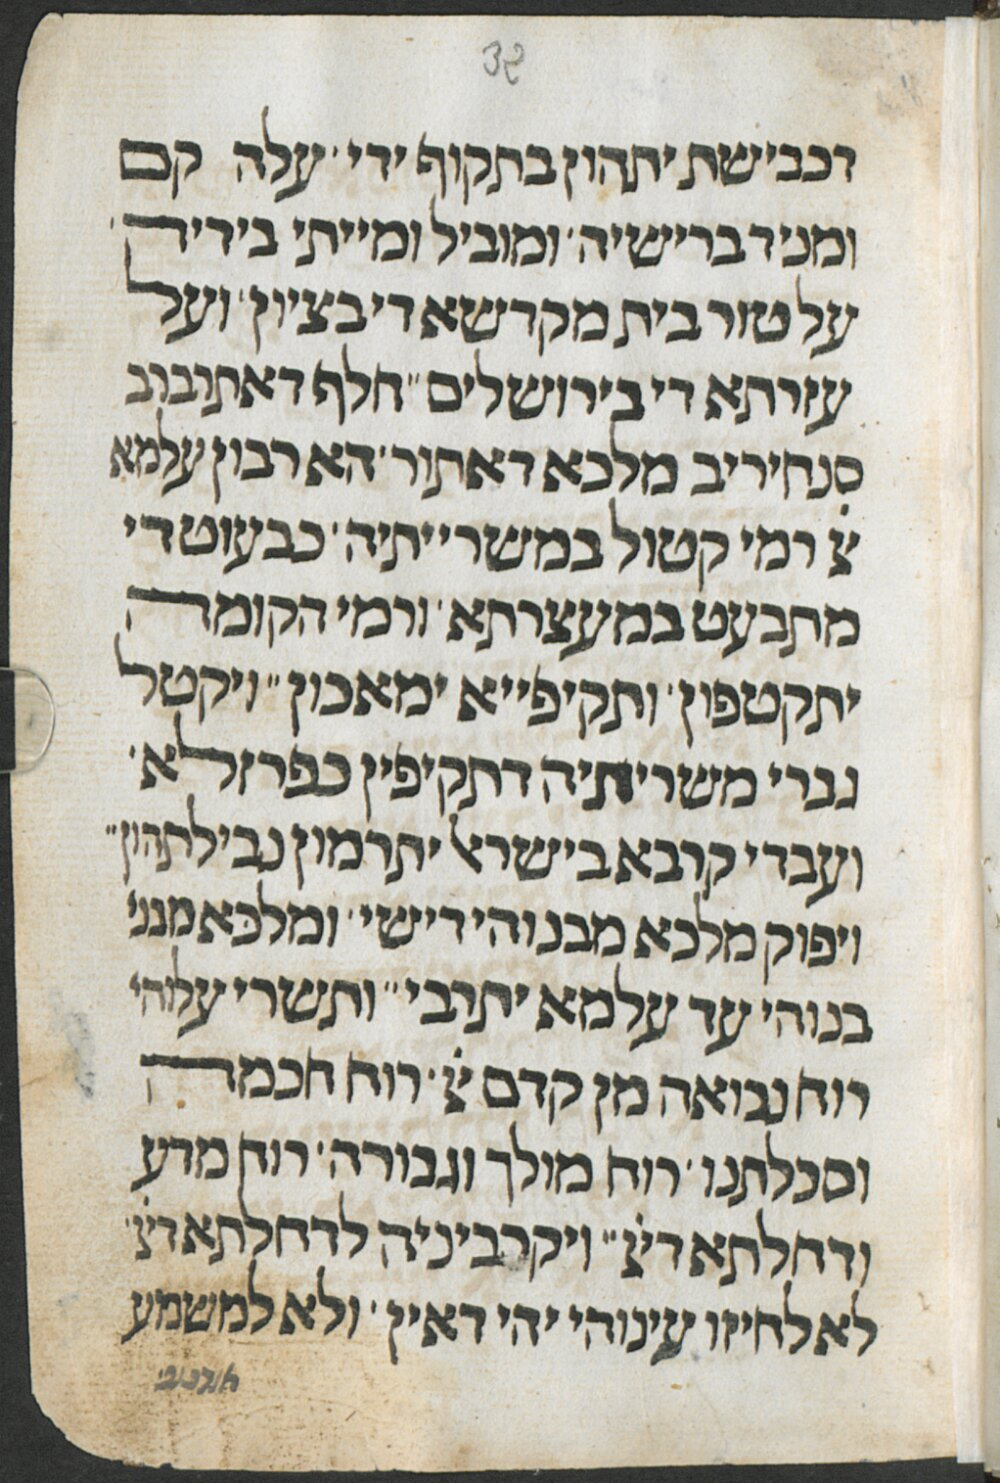 32
דכבישת יתהון בתקוף ידי ׳ עלה קם
ומניד ברישיה ׳ ומוביל ומייתי בידיה ׳
על טור בית מקדשא די בציון ׳ ועל
עזרתא די בירושלים ״ חלף דאתובוב
סנחיריב מלכא דאתור ׳ הא רבון עלמא
יֹיֹ רמי קטול במשרייתיה ׳ כבעוט די
מתבעט במעצרתא ׳ ורמי הקומה
יתקטפון ׳ ותקיפייא ימאכון ״ ויקטל
גברי משריתיה דתקיפין כפרזלא ׳
ועבדי קרבא בישראל יתרמון נבילתהון ״
ויפוק מלכא מבנוהי דישי ׳ ומלכא מבני
בנוהי עד עלמא יתרבי ״ ותשרי עלוהי
רוח נבואה מן קדם יֹיֹ ׳ רוח חכמה
וסכלתנו ׳ רוח מולך וגבורה ׳ רוח מדע
ודחלתא דיֹיֹ ״ ויקרביניה לדחלתא דיֹיֹ ׳
לא לחיזו עינוהי יהי דאין ׳ ולא למשמע